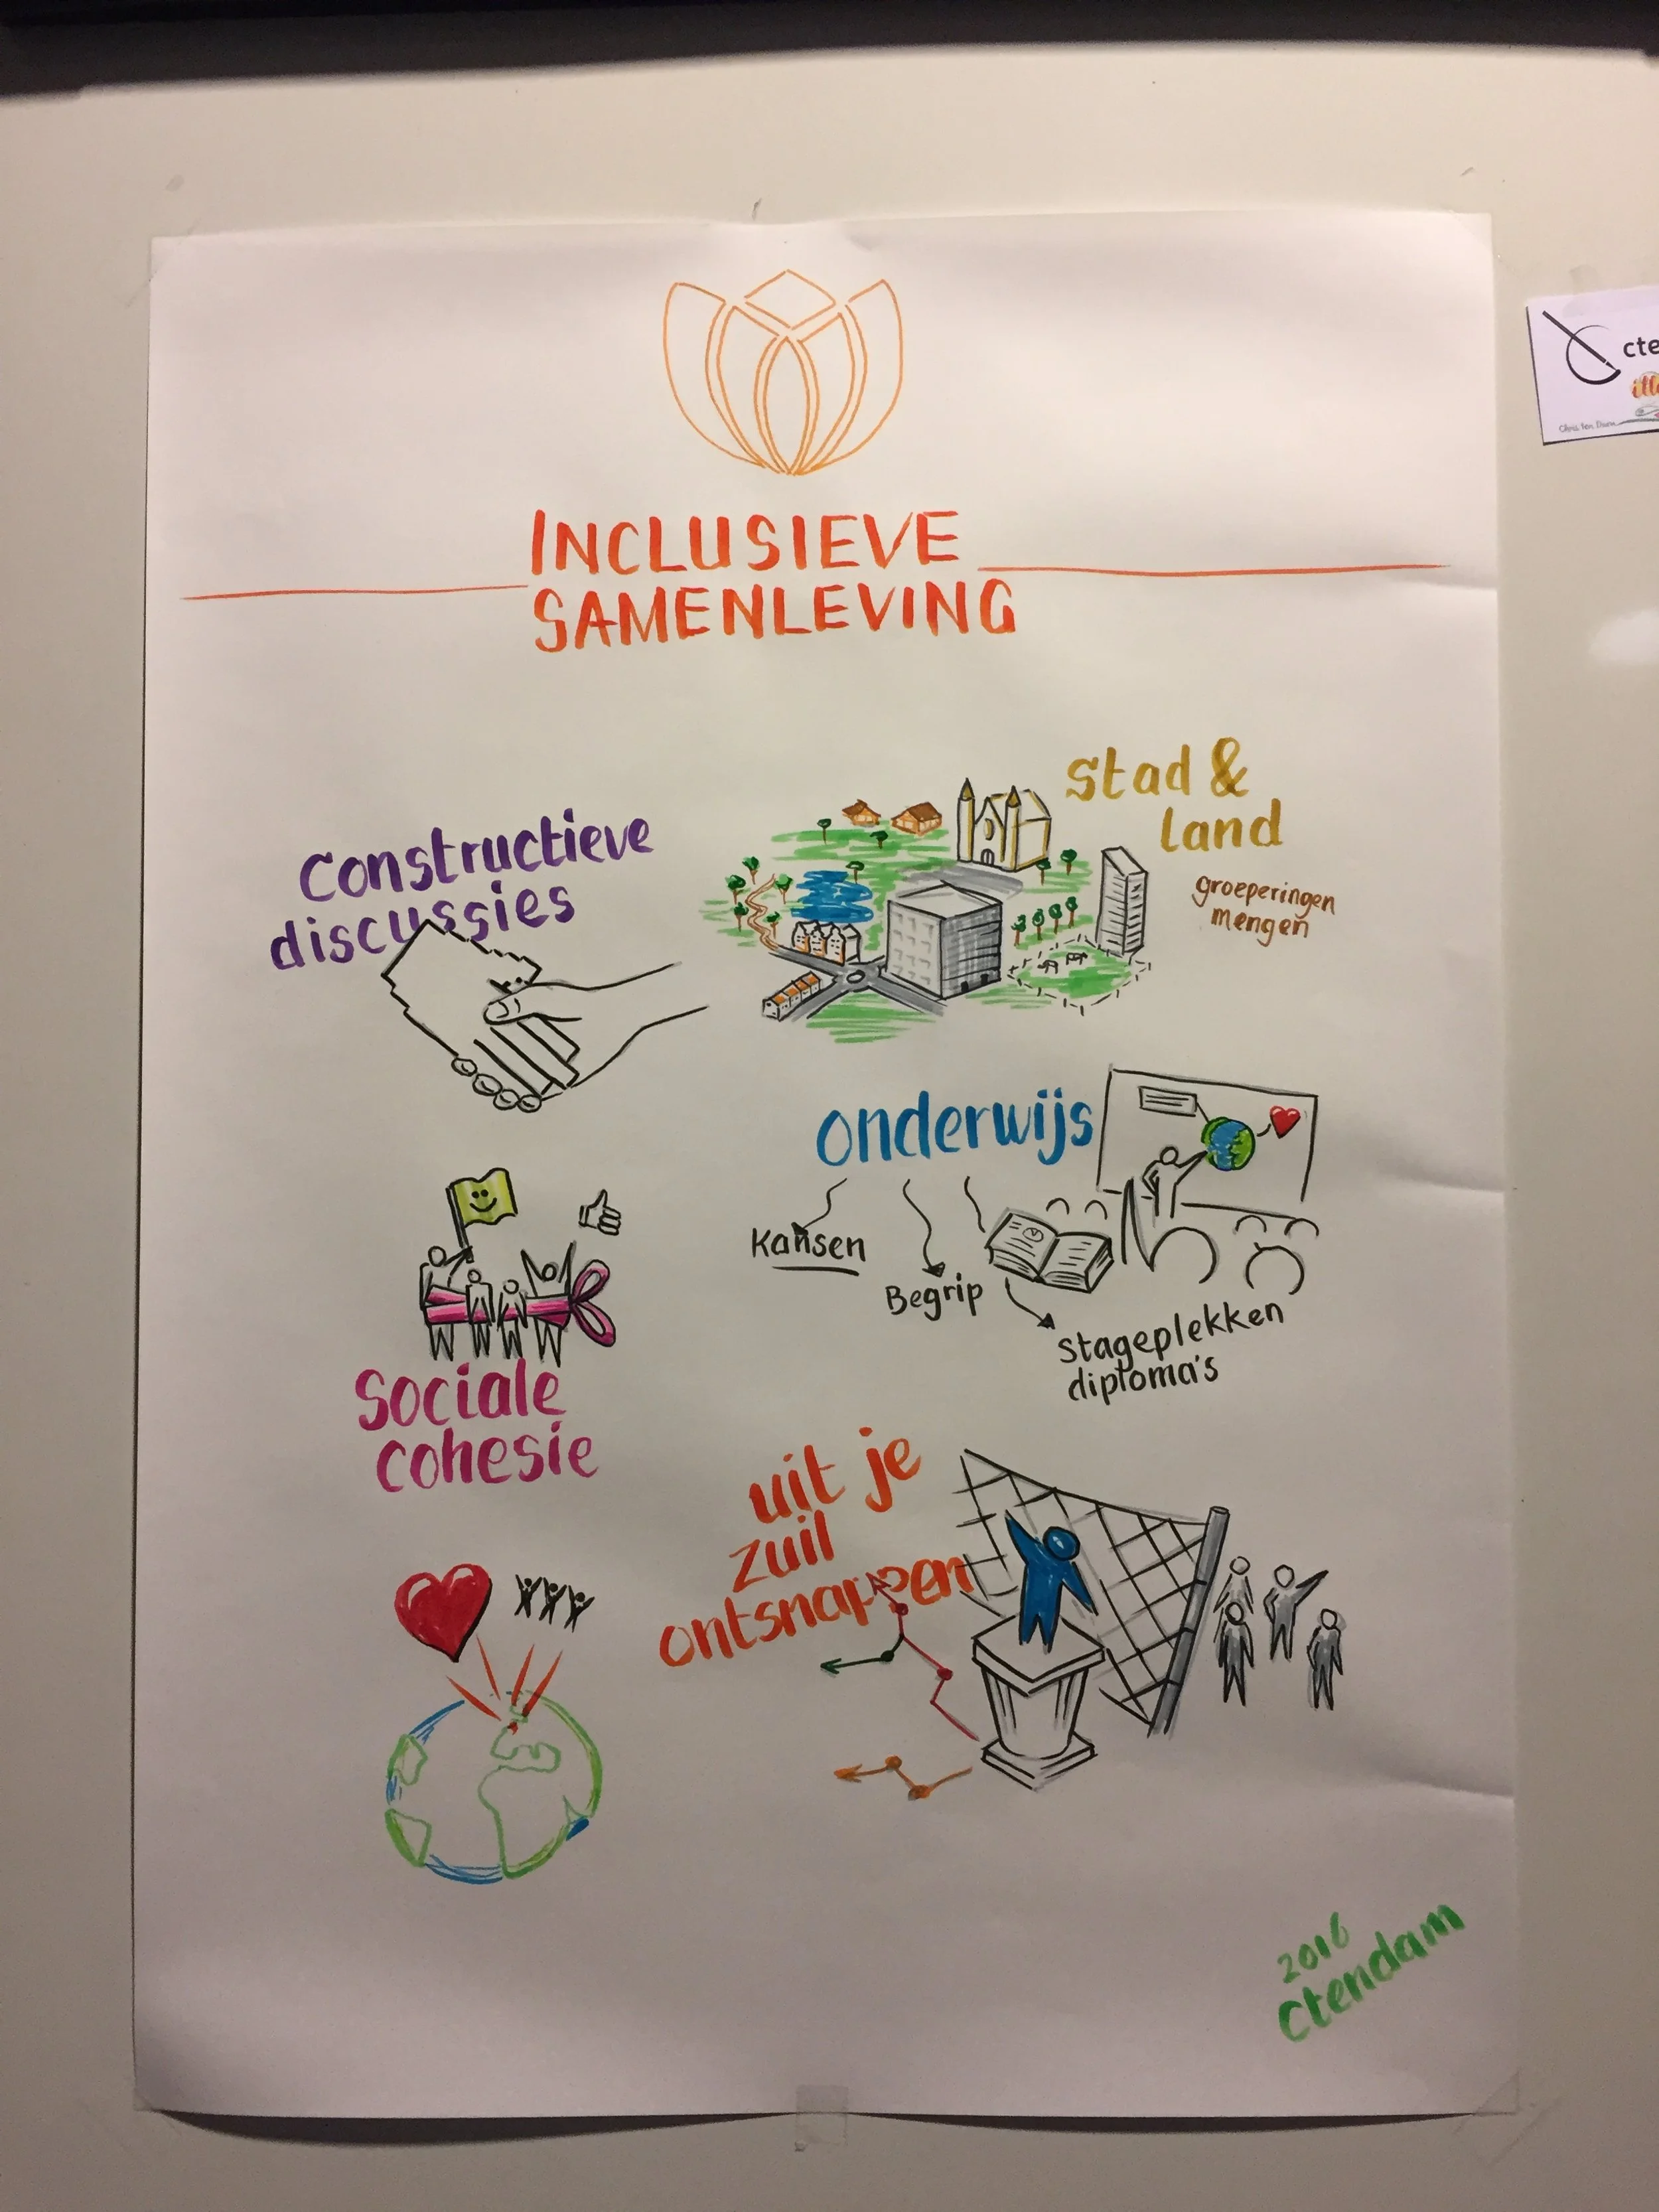 INCLUSIEVE
SAMENLEVING
Constructieve
discussies
stad &
land
groeperingen
mengen
onderwijs
Kansen
Begrip
stageplekken
diploma's
Sociale
cohesie
uit je
zuil
ontsnappen
2016
Ctendam
cte
Chris ten Dam